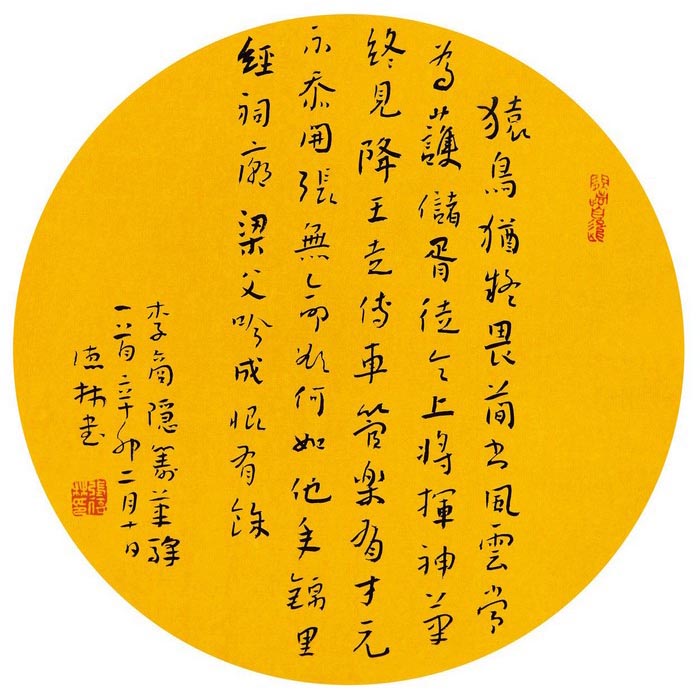 猿鳥猶疑畏簡書風雲常
為護儲胥徒令上將揮神筆
終見降王走傳車管樂有才元
不忝關張無命欲何如他年錦里
經祠廟梁父吟成恨有餘
李商隱籌筆驛
一首辛卯二月十日
德林書
張德林印